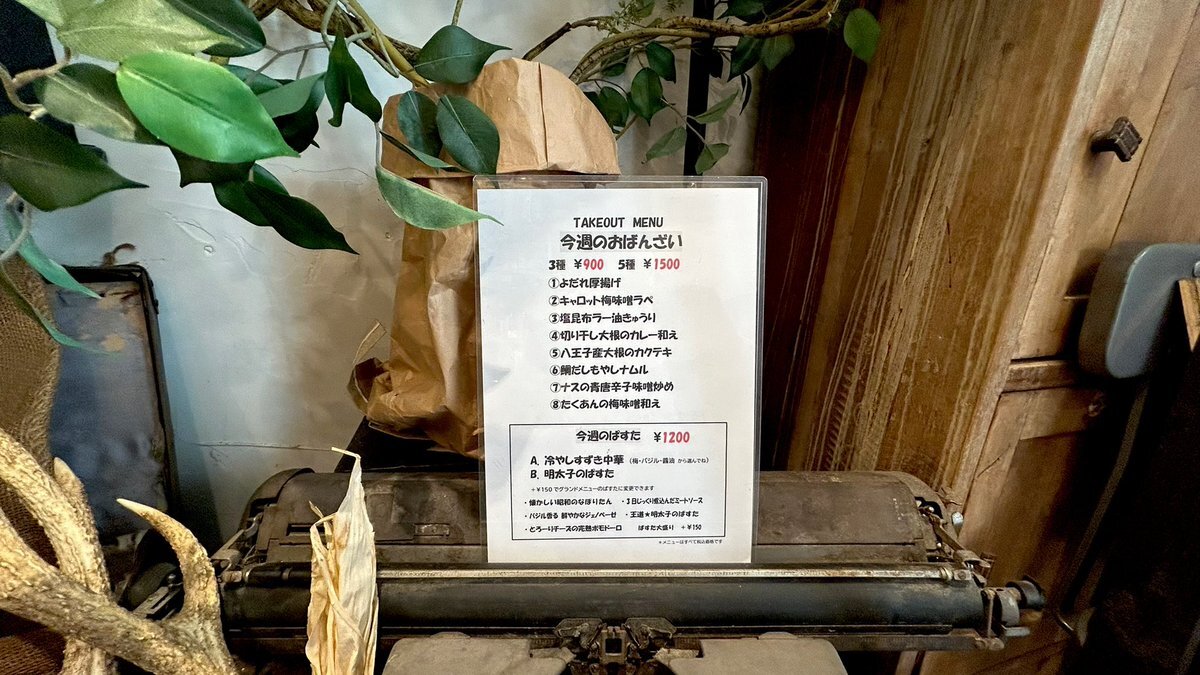 TAKEOUT MENU
今週のおばんざい
3種 ¥900 5種 ¥1500
①よだれ厚揚げ
②キャロット梅味噌ラペ
③塩昆布ラー油きゅうり
④切り干し大根のカレー和え
⑤八王子産大根のカクテキ
⑥鯛だしもやしナムル
⑦ナスの青唐辛子味噌炒め
⑧たくあんの梅味噌和え
今週のぱすた ¥1200
A. 冷やしすずき中華 (梅・バジル・醤油 から選んでね)
B. 明太子のぱすた
+¥150でグランドメニューのぱすたに変更できます
・懐かしい昭和のなぽりたん ・3日じっくり煮込んだミートソース
・バジル香る 鮮やかなジェノベーゼ ・王道★明太子のぱすた
・とろーりチーズの完熟ポモドーロ ぱすた大盛り +¥150
*メニューはすべて税込価格です